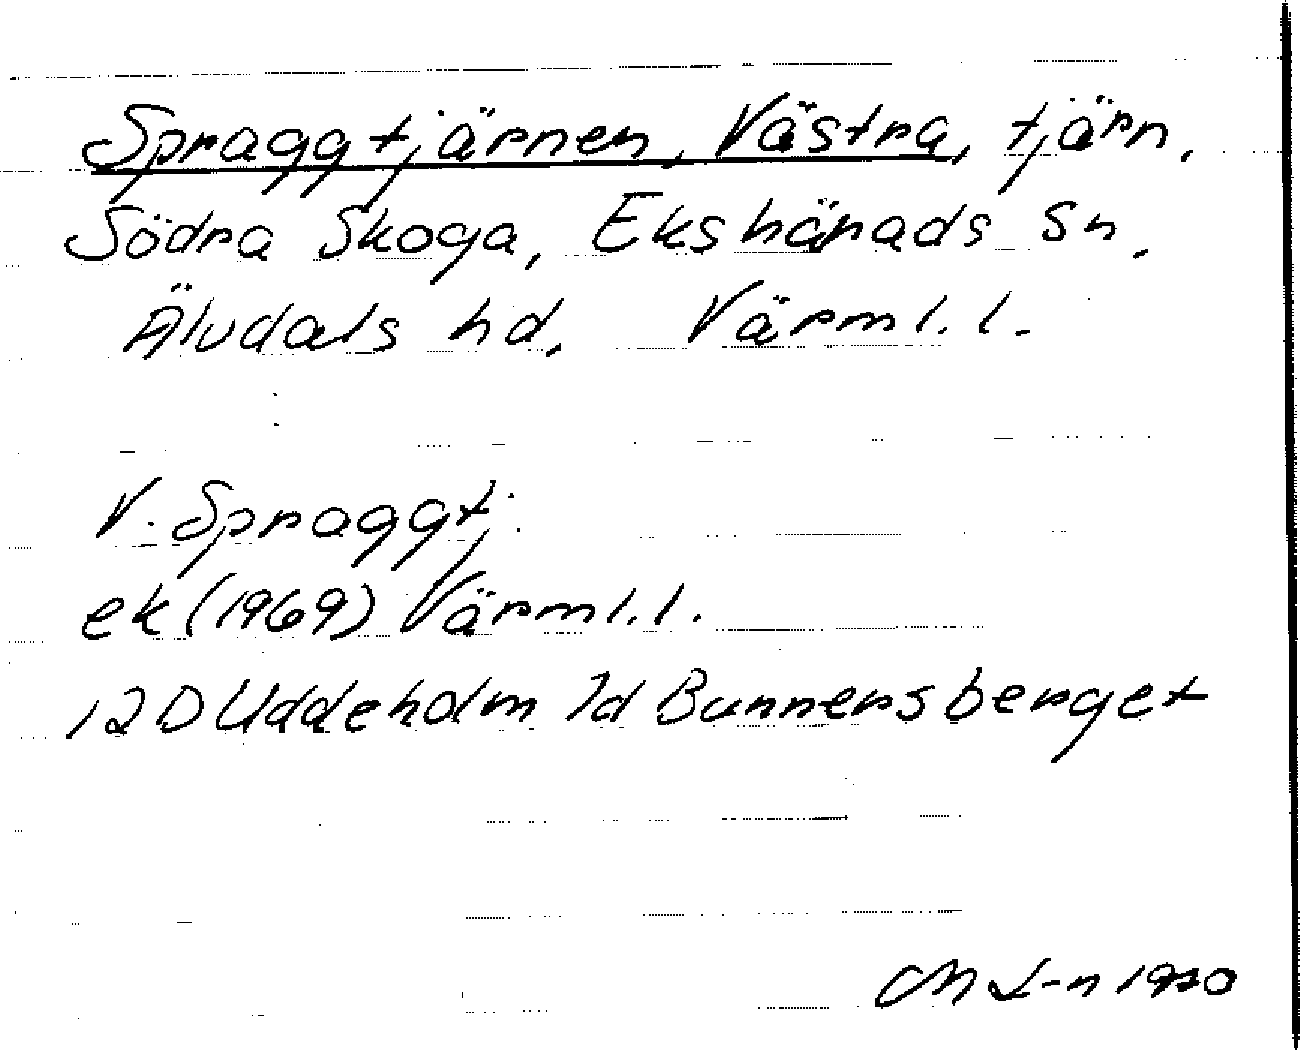 Spraggtjärnen, Västra, tjärn.
Södra Skoga, Ekshärads sn.
Älvdals hd. Värml. l.
V. Spraggtj.
ek (1969) Värml. l.
12D Uddeholm 7d Bunnersberget
M L-n 1970